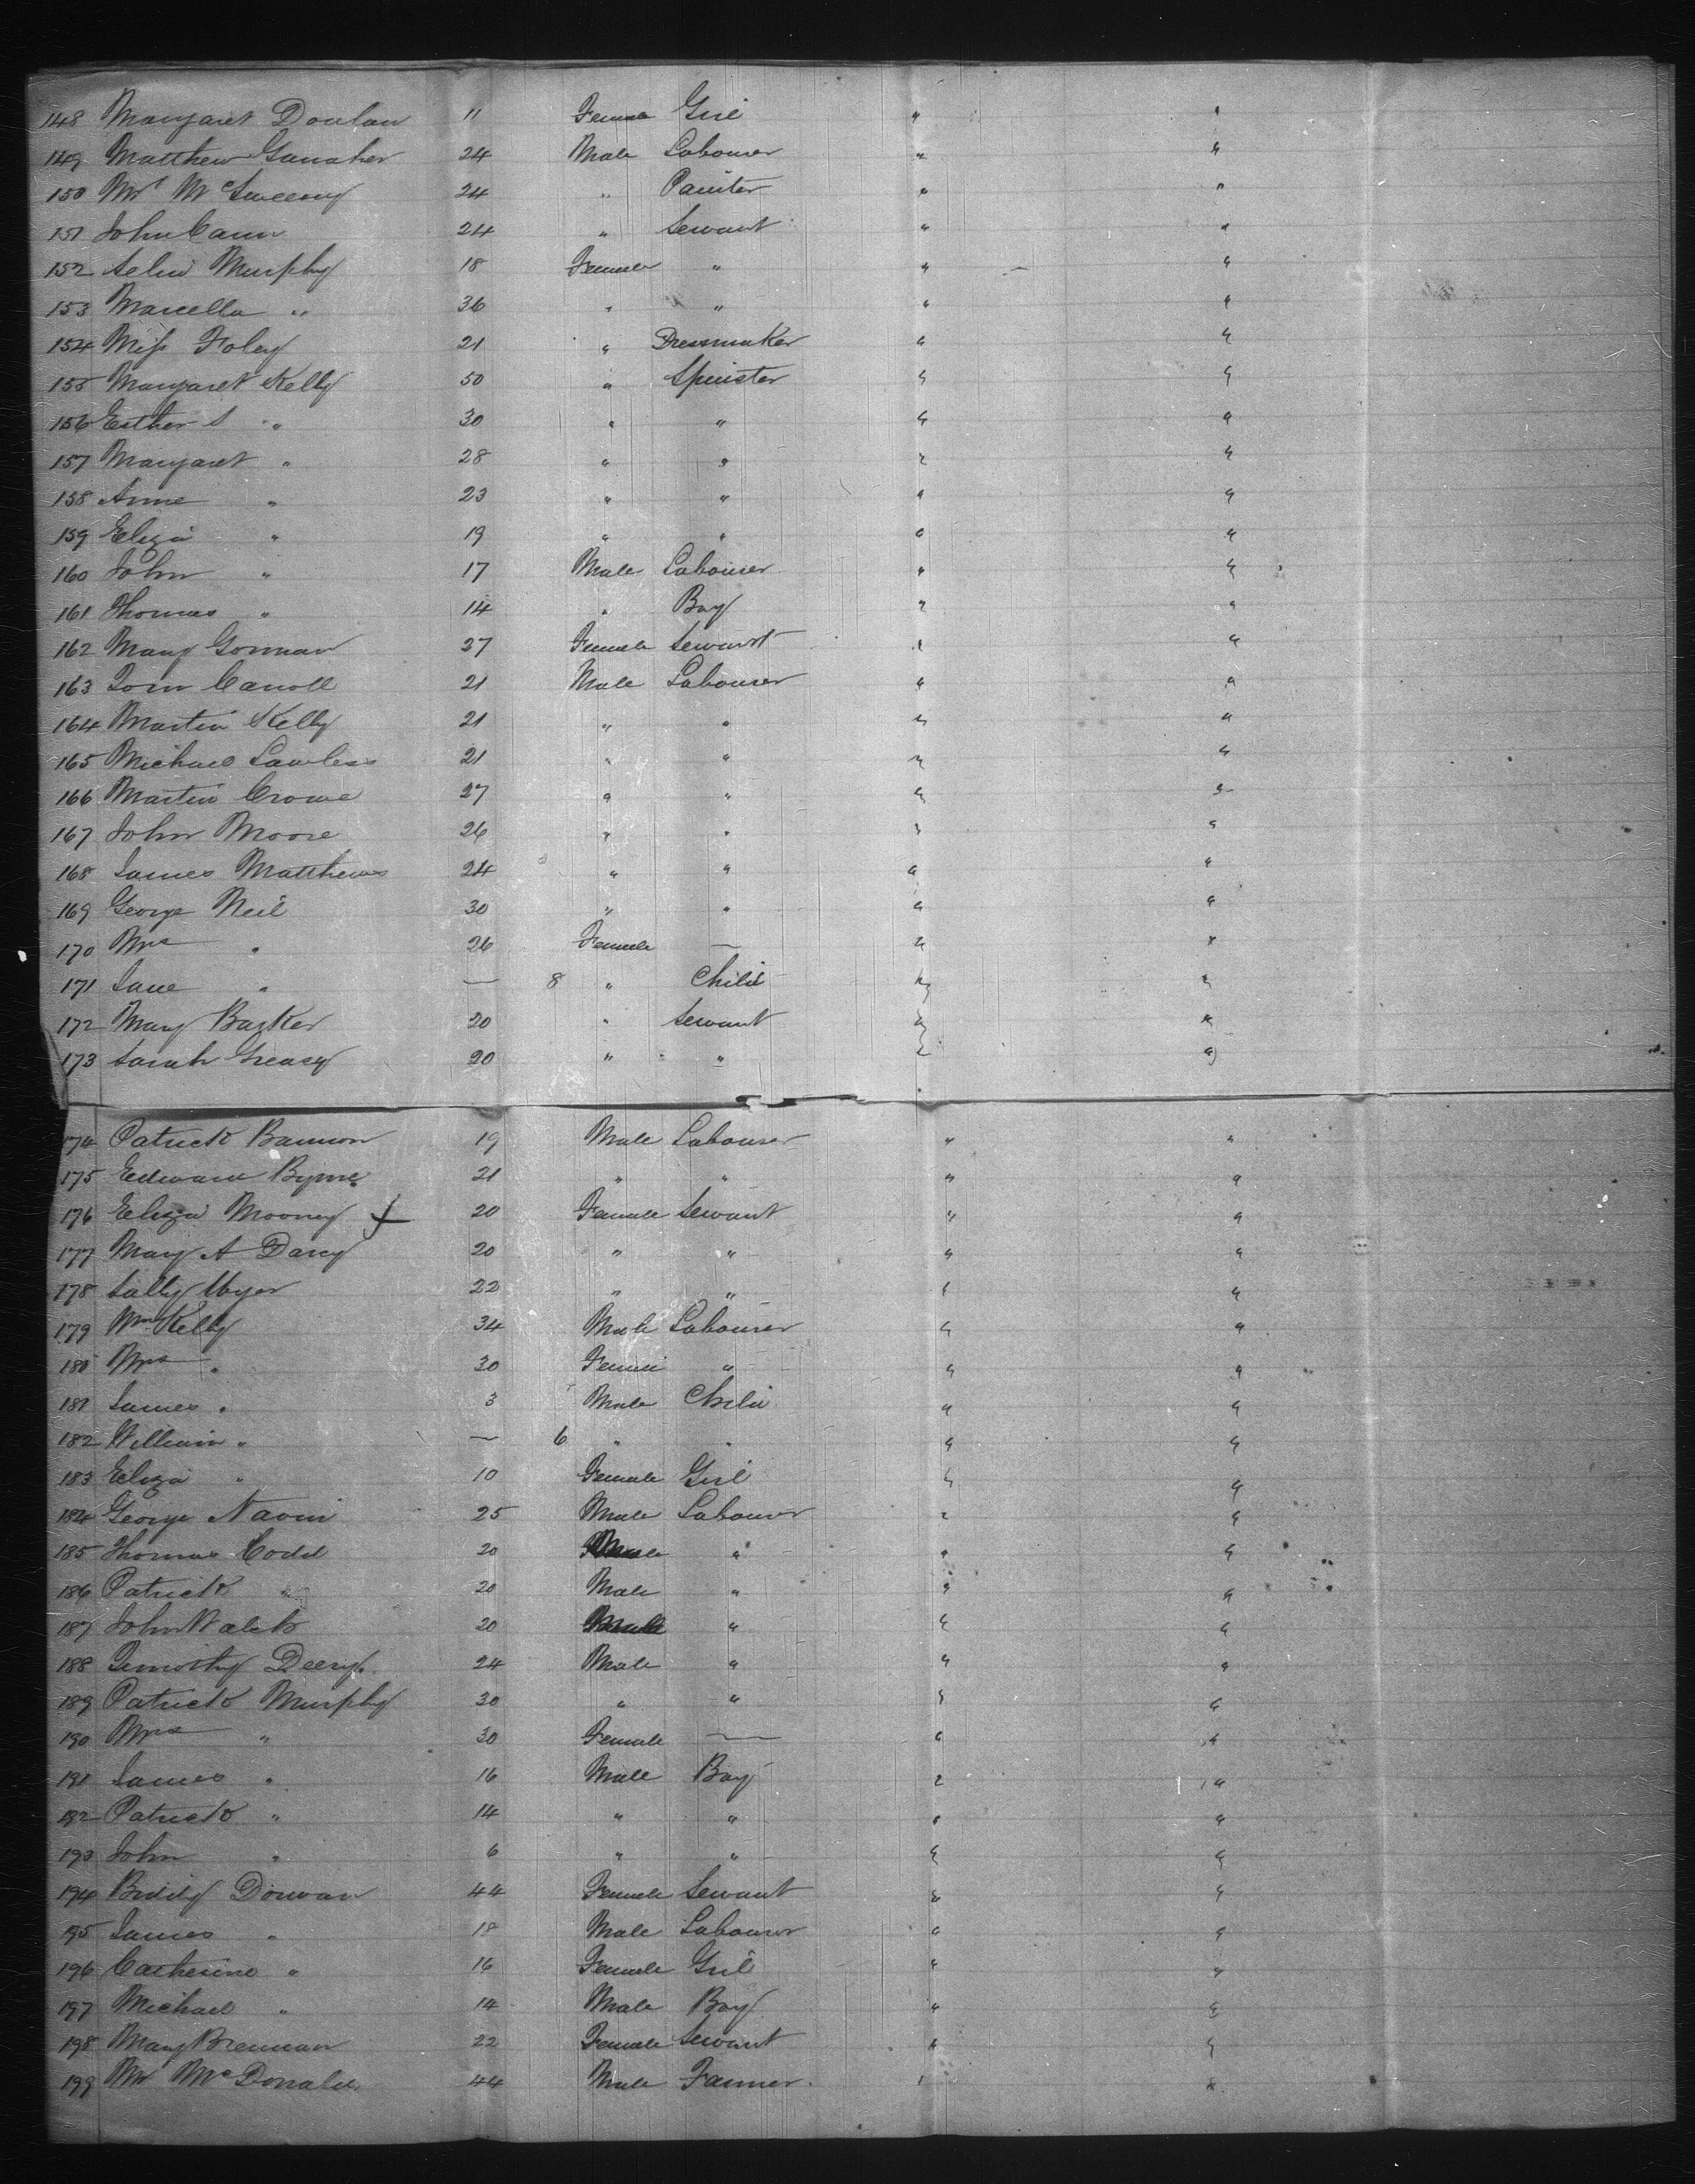 148 Margaret Donlan 11 Female Girl " "
149 Matthew 24 Male Labourer " "
150 Mr McSweeny 24 " Painter " "
151 John Cann 24 " Servant " "
152 Murphy 18 Female " " "
153 Marcella " 36 " " " "
154 Miss Foley 21 " Dressmaker " "
155 Margaret Kelly 50 " Spinster " "
156 Esther S " 30 " " " "
157 Margaret " 28 " " " "
158 Anne " 23 " " " "
159 Eliza " 19 " " " "
160 John " 17 Male Labourer " "
161 Thomas " 14 " Boy " "
162 Mary Gorman 27 Female Servant " "
163 Tom Caroll 21 Male Labourer " "
164 Martin Kelly 21 " " " "
165 Michael Lawless 21 " " " "
166 Martin Crowe 27 " " " "
167 John Moore 26 " " " "
168 James Matthews 24 " " " "
169 George Neil 30 " " " "
170 Mrs " 26 Female — " "
171 Jane " — 8 " Child " "
172 Mary 20 " Servant " "
173 Sarah Greasy 20 " " " "
174 Patrick Bannon 19 Male Labourer " "
175 Edward Byrne 21 " " " "
176 Eliza Mooney 20 Female Servant " "
177 Mary A Darcy 20 " " " "
178 Sally 22 " " " "
179 Wm Kelly 34 Male Labourer " "
180 Mrs " 30 Female " " "
181 James " 3 Male Child " "
182 William " — 6 " " " "
183 Eliza " 10 Female Girl " "
184 George Navin 25 Male Labourer " "
185 Thomas Codd 20 Male " " "
186 Patrick " 20 Male " " "
187 John 20 Male " " "
188 Timothy Deery 24 Male " " "
189 Patrick Murphy 30 " " " "
190 Mrs " 30 Female — " "
191 James " 16 Male Boy " "
192 Patrick " 14 " " " "
193 John " 6 " " " "
194 Donvan 44 Female Servant " "
195 James " 18 Male Labourer " "
196 Catherine " 16 Female Girl " "
197 Michael " 14 Male Boy " "
198 Mary Brennan 22 Female Servant " "
199 Mr McDonald 44 Male Farmer " "